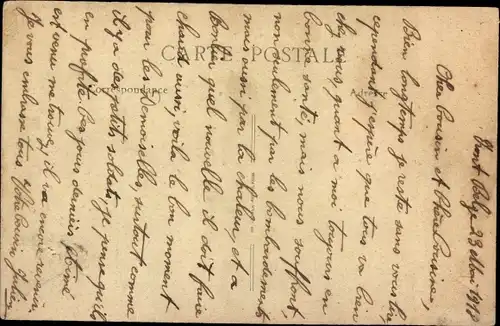 CARTE POSTALE
Correspondance
Adresse
23 Mai 1918
Cher Cousin et Chère Cousine,
Bien longtemps je reste sans vous lire
cependant j'espère que tous va bien
chez vous, quant a moi toujours en
bonne santé, mais nous souffront
non seulement par les bombardements
mais aussi par la chaleur, et a
quel nouvelle il doit faire
chaud aussi, voila le bon moment
pour les Demoiselles, surtout comme
il y a des petits soldats, je pense qu'ils
en profite. Ces jours derniers
est venu me trouver, il va encore revenir,
Je vous embrasse tous Votre Cousin Julien